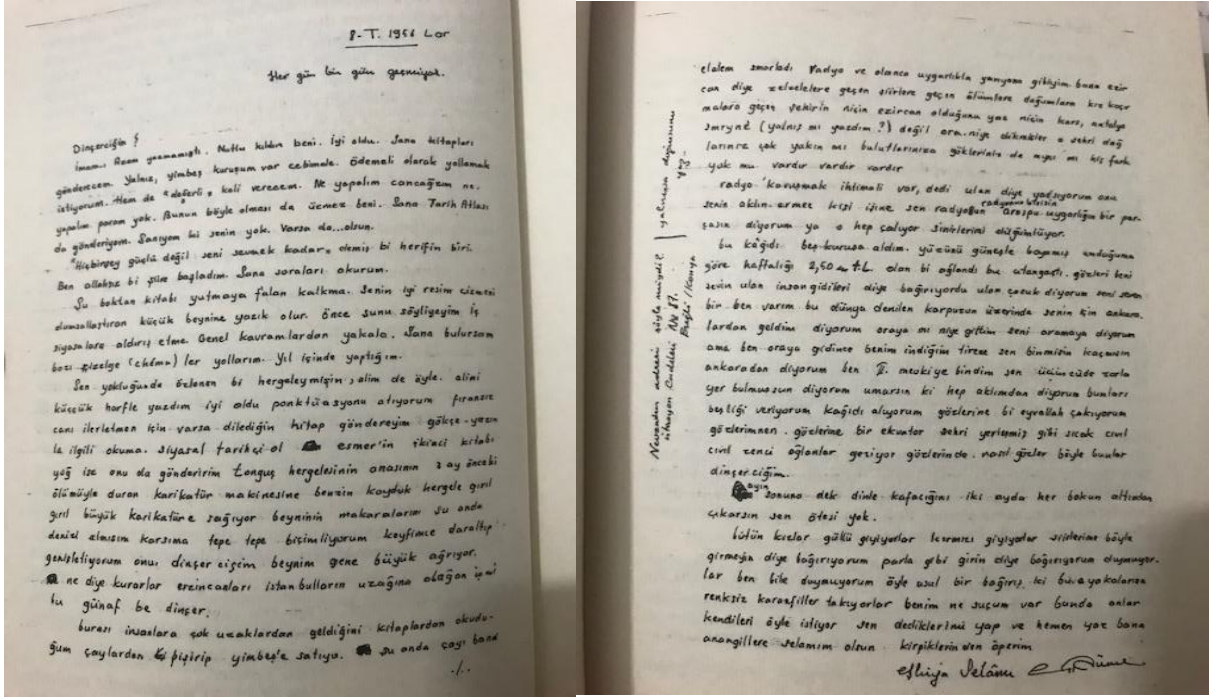 8-T. 1956 Lor
Her gün bin gün geçmiyor.
Dinçerciğim !
İmamı Azam yazmamıştı. Mutlu kıldın beni. İyi oldu. Sana kitapları
göndercem. Yalnız, yimbeş kuruşum var cebimde. Ödemeli olarak yollamak
istiyorum. Hem de "değerli" koli verecem. Ne yapalım cancağzım ne.
yapalım param yok. Bunun böyle olması da üzmez beni. Sana Tarih Atlası
da gönderiyom. Sanıyom ki senin yok. Varsa da...olsun.
"Hiçbirşey güçlü değil seni sevmek kadar" demiş bi herifin biri.
Ben allahsız bi şiire başladım. Sana soraları okurum.
Şu boktan kitabı yutmaya falan kalkma. Senin iyi resim çizmeni
dumsallaştıran küçük beynine yazık olur. Önce şunu söyliyeyim İç
siyasalara aldırış etme. Genel kavramlardan yakala. Sana bulursam
bazı çizelge (chéma) ler yollarım. Yıl içinde yaptığım.
Sen yokluğunda özlenen bi hergeleymişsin, alim de öyle. alini
küççük harfle yazdım iyi oldu ponktüasyonu atıyorum fıransız
canı ilerletmen için varsa dilediğin kitap göndereyim gökçe-yazın
la ilgili okuma. siyasal tarihçi ol esmer'in ikinci kitabı
yoğ ise onu da gönderirim tonguş hergelesinin anasının 3 ay öncebi
ölümüyle duran karikatür makinesine benzin koyduk hergele gırıl
gırıl büyük karikatüre sağıyor beyninin makaralarını şu anda
denizi almışım karşıma tepe tepe bişimliyorum keyfimce daraltıp
genişletiyorum onu. dinşercişim beynim gene büyük ağrıyor.
ne diye kurarlar erzincanları istanbulların uzağına olağan işmi
bu günaf be dinçer.
burası insanlara çok uzaklardan geldiğini kitaplardan okudu-
ğum çaylardan pişirip yimbeş'e satıyo. şu anda çayı bana
./.
elalem ısmarladı radyo ve olanca uygarlıkla yanyana gibiyim. bana ezir
can diye zelzelelere geçen şiirlere geçen ölümlere doğumlara kız kaçır
malara geçen şehirin niçin ezircan olduğunu yaz niçin kars, antalya
smryna (yalnış mı yazdım?) değil ora. niye dikmişler o şehri dağ
larınız çok yakın mı bulutlarınıza göklerinin de aynı mı hiç fark
yok mu vardır vardır vardır
radyo "kavuşmak ihtimali var, dedi ulan diye yadsıyorum onu
senin aklın ermez kişi işine sen radyosun orospu uygarlığın bir par-
çasın diyorum ya o hep çalıyor sinirlerimi düğümlüyor.
bu kâğıdı beş kuruşa aldım. yüzünü güneşle boyamış
göre haftalığı 2,50 T.L. olan bi oğlandı bu utangaştı. gözleri beni
sevin ulan insangidileri diye bağırıyordu ulan çocuk diyorum seni seven
bir ben varem bu dünya denilen karpuzun üzerinde senin için ankara.
lardan geldim diyorum oraya mı niye gittim seni aramaya diyorum
ama ben oraya gidince benim indiğim tirene sen binmişin kaçmışın
ankaradan diyorum ben II. mevkiye bindim sen üçüncüde zorla
yer bulmuşsun diyorum umarsın ki hep aklımdan diyorum bunları
beşliği veriyorum kağıdı alıyorum gözlerine bi eyvallah çakıyorum
gözlerimnen. gözlerine bir ekvator şehri yerleşmiş gibi sıcak cıvıl
cıvıl zenci oğlanlar geziyor gözlerinde. nasıl gözler böyle bunlar
dinçerciğim.
ayın sonuna dek dinle kafacığını iki ayda her bokun altından
çıkarsın sen ötesi yok.
bütün kızlar gülkü giyiyorlar kırmızı giyiyorlar şiirlerime böyle
girmeyin diye bağırıyorum parla gibi girin diye bağırıyorum duymuyor.
lar ben bile duymuyorum öyle usul bir bağırış ki bu. yakalarına
renksiz karanfiller takıyorlar benim ne suçum var bunda onlar
kendileri öyle istiyor sen dediklerimi yap ve hemen yaz bana
anangillere selamım olsun. kirpiklerinden öperim
Nevzatın adresi şöyle miydi? / yalnışsa doğrusunu
yaz.
İtmeyen Caddesi No 87.
Ereğli / Konya